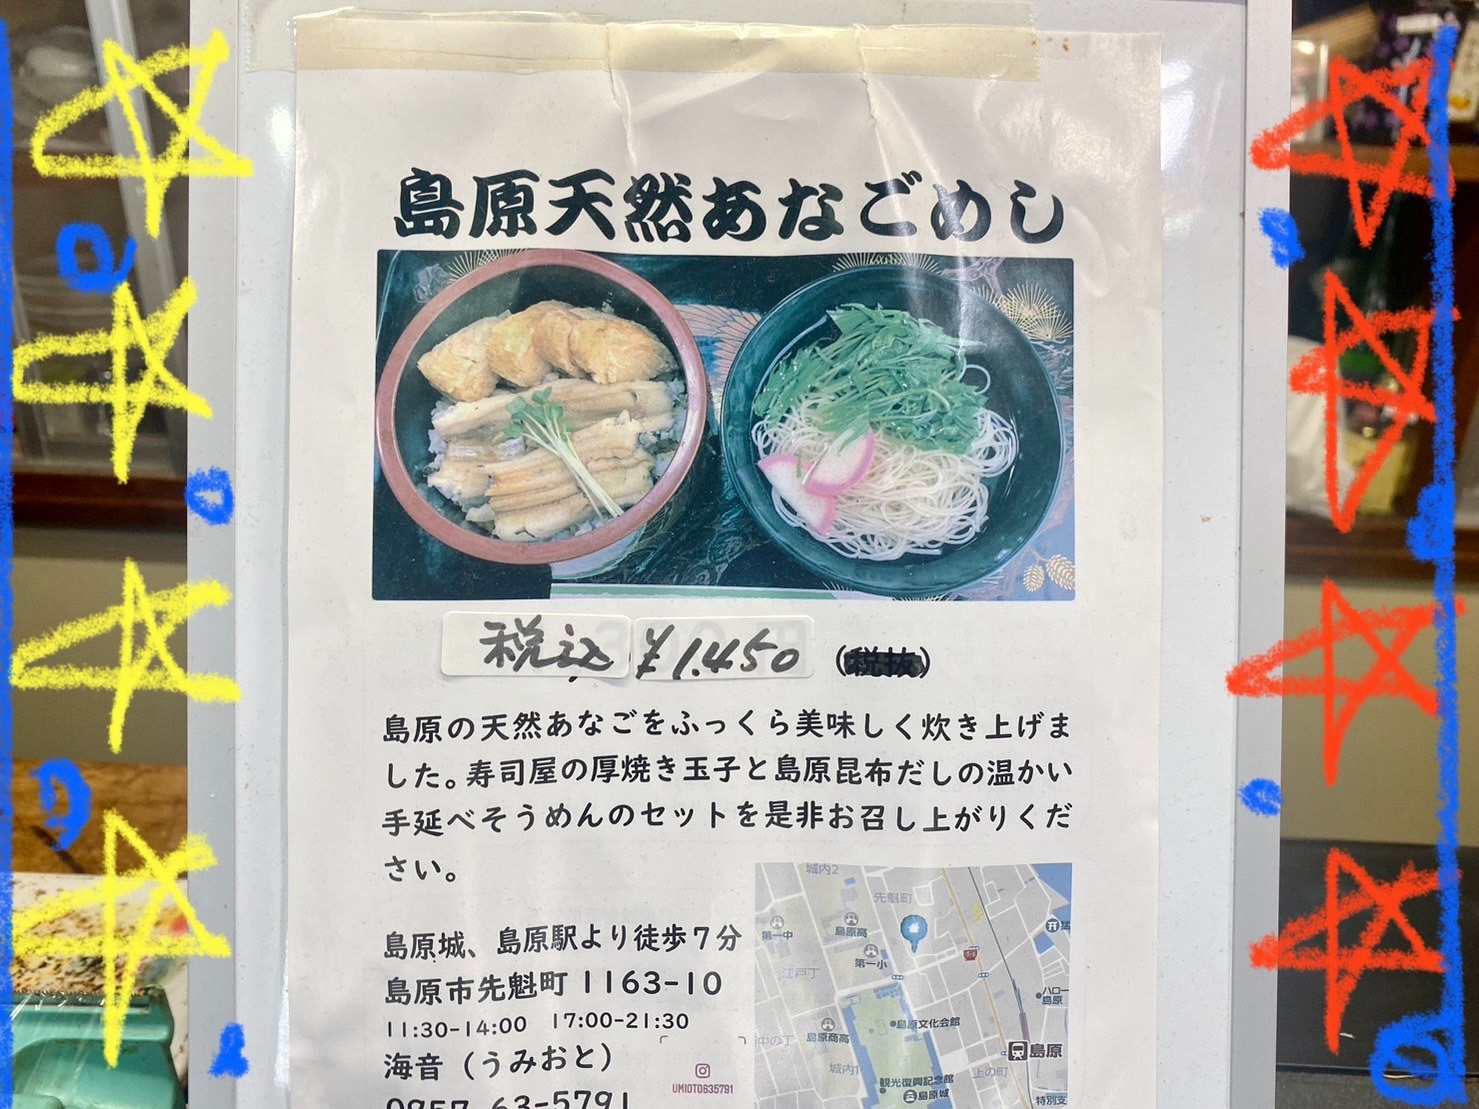 島原天然あなごめし
税込 ¥1.450 (税抜)
島原の天然あなごをふっくら美味しく炊き上げま
した。寿司屋の厚焼き玉子と島原昆布だしの温かい
手延べそうめんのセットを是非お召し上がりくだ
さい。
島原城、島原駅より徒歩7分
島原市先魁町1163-10
11:30-14:00 17:00-21:30
海音(うみおと)
0957-63-5791
UMIOTO635791
城内2
先魁町
第一中
島原高
第一小
江戸丁
ハロー
島原
島原文化会館
島原商高
中の丁
島原
城内1
上の町
観光復興記念館
島原城
特別支